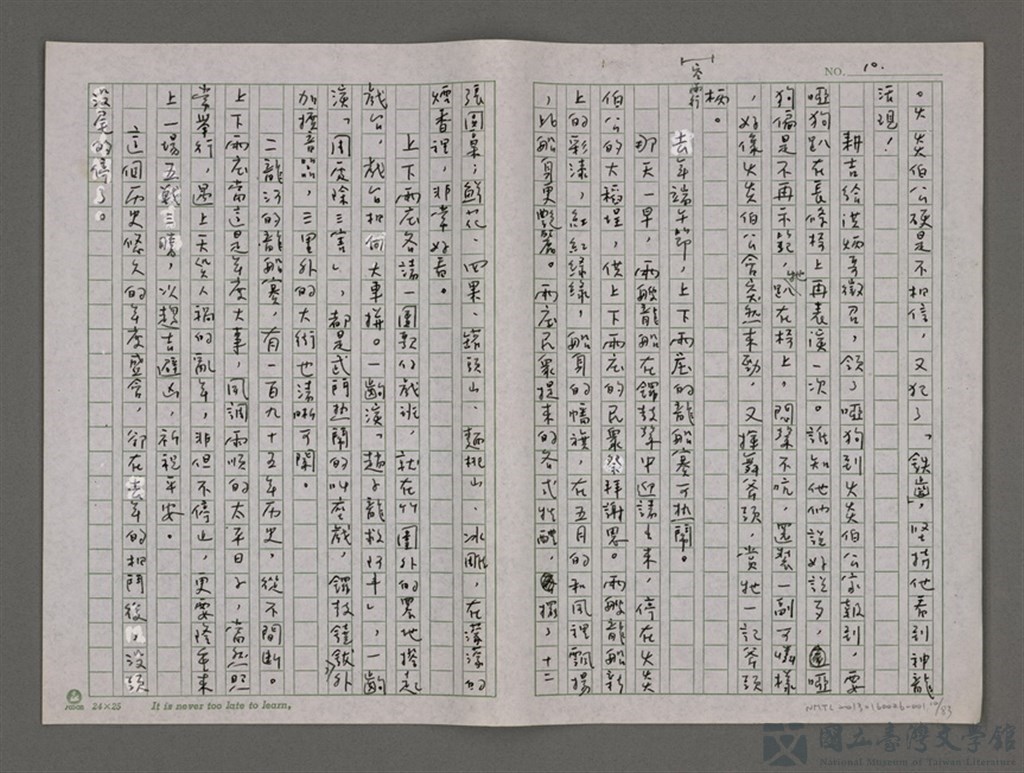 NO. 10.
。火炎伯公硬是不相信，又犯了「鉄齒」，堅持他看到神龍
活現！
耕吉給洪炳哥徵召，領了啞狗到火炎伯公家報到，要
啞狗趴在長條椅上再表演一次。誰知他們說好說歹，啞
狗偏是不再示範，牠趴在椅上，悶聲不吭，還裝一副可憐樣
，好像火炎伯公會突然來勁，又揮舞斧頭，賞牠一記斧頭
柄。
空兩行
去年端午節，上下兩庄的龍船賽可热鬧。
那天一早，兩艘龍船在鑼鼓聲中迎請出來，停在火炎
伯公的大稻埕，供上下兩庄的民眾祭拜謝恩。兩艘龍船新
上的彩漆，紅紅綠綠，船身的幡旗，在五月的和風裡飄揚
，比船身更艷麗。兩庄民眾提來的各式牲醴，擺了十二
張圓桌；鮮花、四果、罐頭山、麵桃山、冰雕，在濛濛的
煙香裡，非常好看。
上下兩庄各請一團歌仔戲班，就在竹圍外的畧地搭起
戲台，戲台相向大車拼。一齣演「趙子龍救阿斗」，一齣
演「周處除三害」，都是武鬥热鬧的叫座戲，鑼鼓鐃鈸外
加擴音器，三里外的大街也清晰可聞。
二龍河的龍船賽，有一百九十五年历史，從不間断。
上下兩庄當這是年度大事，風調雨順的太平日子，當然照
常舉行，遇上天災人禍的亂年，非但不停止，更要隆重來
上一場五戰三勝，以趨吉避凶，祈祝平安。
這個历史悠久的年度盛會，卻在去年的相鬥後，沒頭
沒尾的停了。
24×25 It is never too late to learn.
NMTL 00131600026-001 10/83
國立臺灣文學館
National Museum of Taiwan Literature